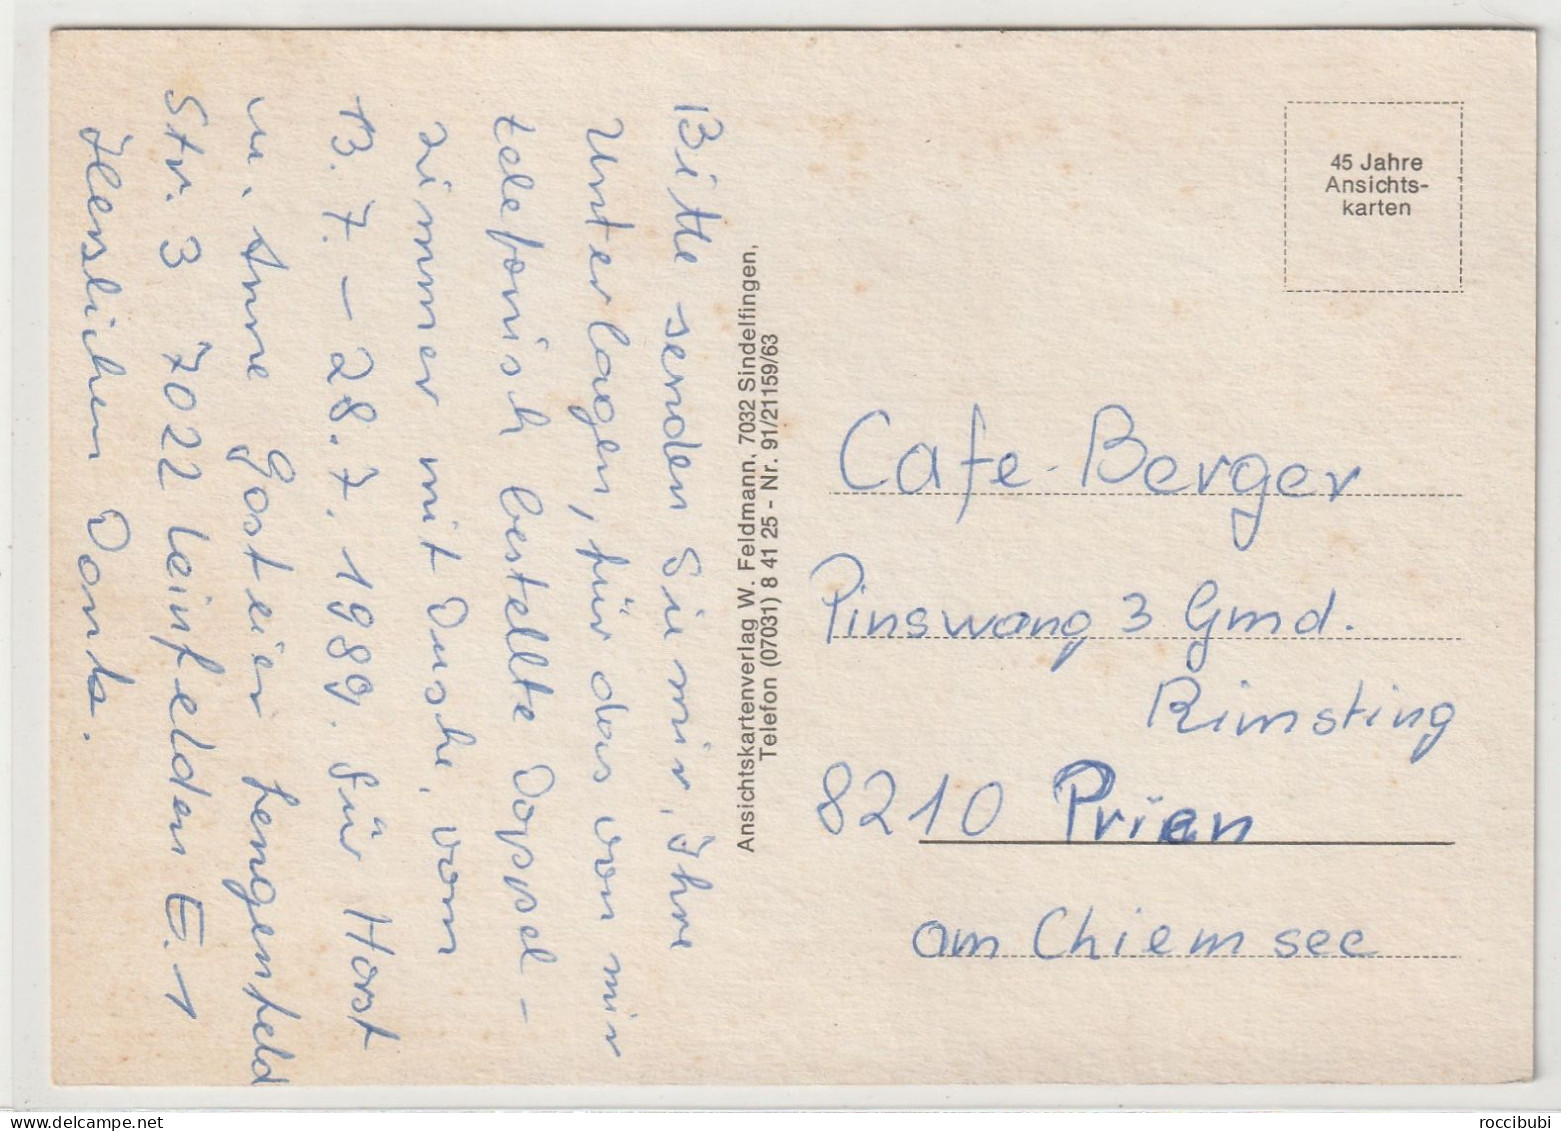 Bitte senden Sie mir, Ihre
Unterlagen, für das von mir
telefonisch bestellte Doppel-
zimmer mit Dusche, vom
13.7. - 28.7.1989. für Horst
u. Anne Gosteier Lengenfeld
Str. 3 7022 Leinfelden E. 1
Herzlichen Dank.
Ansichtskartenverlag W. Feldmann, 7032 Sindelfingen,
Telefon (07031) 8 41 25 - Nr. 91/21159/63
45 Jahre
Ansichts-
karten
Cafe-Berger
Pinswang 3 Gmd.
Rimsting
8210 Prien
am Chiemsee
roccibubi